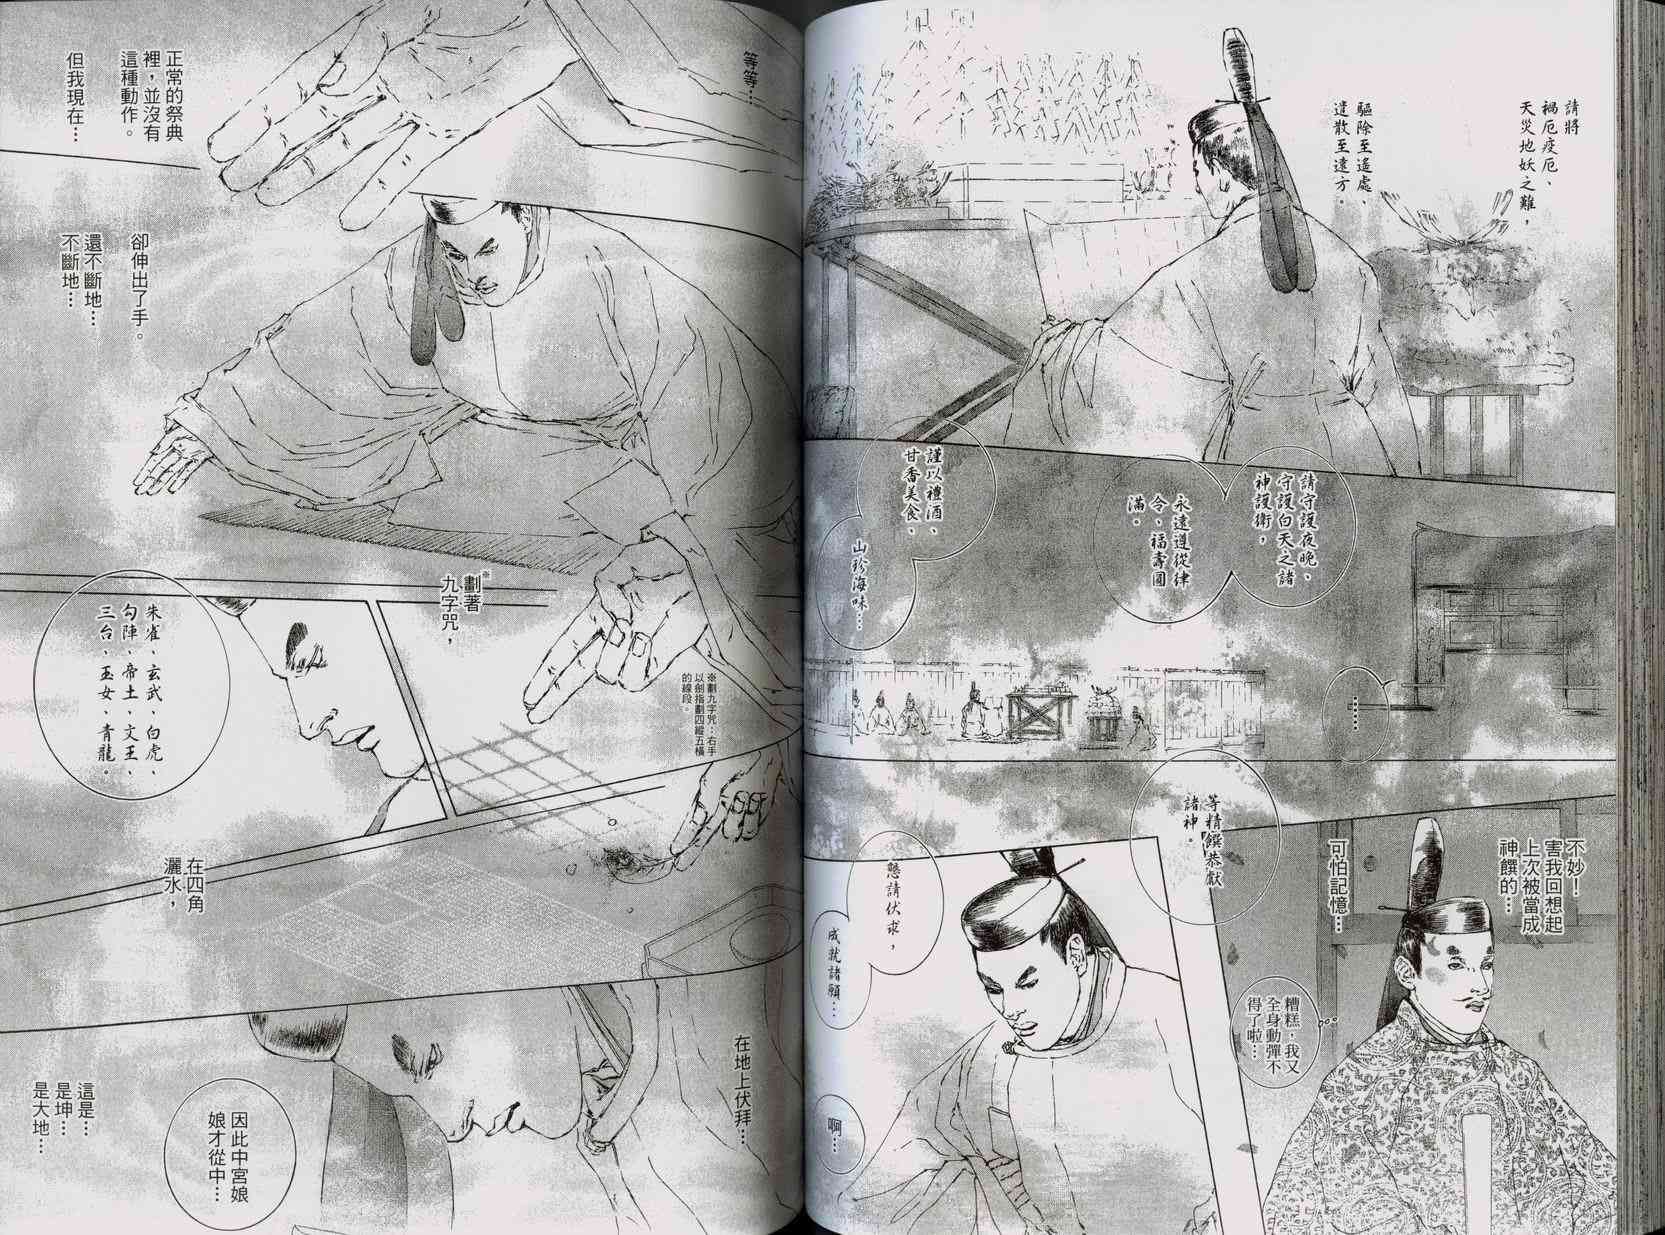 請將
禍厄疫厄、
天災地妖之難，
驅除至遙處、
遣散至遠方。
請守護夜晚、
守護白天之諸
神護衛，
永遠遵從律
令、福壽圓
滿。
謹以禮酒、
甘香美食、
山珍海味…
……
等精饌恭獻
諸神。
不妙！
害我回想起
上次被當成
神饌的…
可怕記憶…
糟糕，我又
全身動彈不
得了啦…
懇請伏求，
成就諸願…
啊…
等等…
正常的祭典
裡，並沒有
這種動作。
但我現在…
卻伸出了手。
還不斷地…
不斷地…
※劃著
九字咒，
※劃九字咒：右手
以劍指劃四縱五橫
的線段。
朱雀、玄武、白虎、
勾陣、帝土、文王、
三台、玉女、青龍。
在四角
灑水，
在地上伏拜…
因此中宮娘
娘才從中…
這是…
是坤…
是大地…